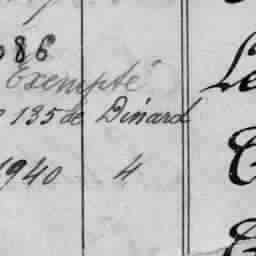 086
Exempté
135 de Dinard
1940 4
Le